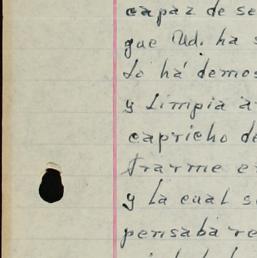 capaz de se
que Ud. ha s
Lo há demos
y Limpia a
capricho de
trarme e
y La cual s
pensaba re